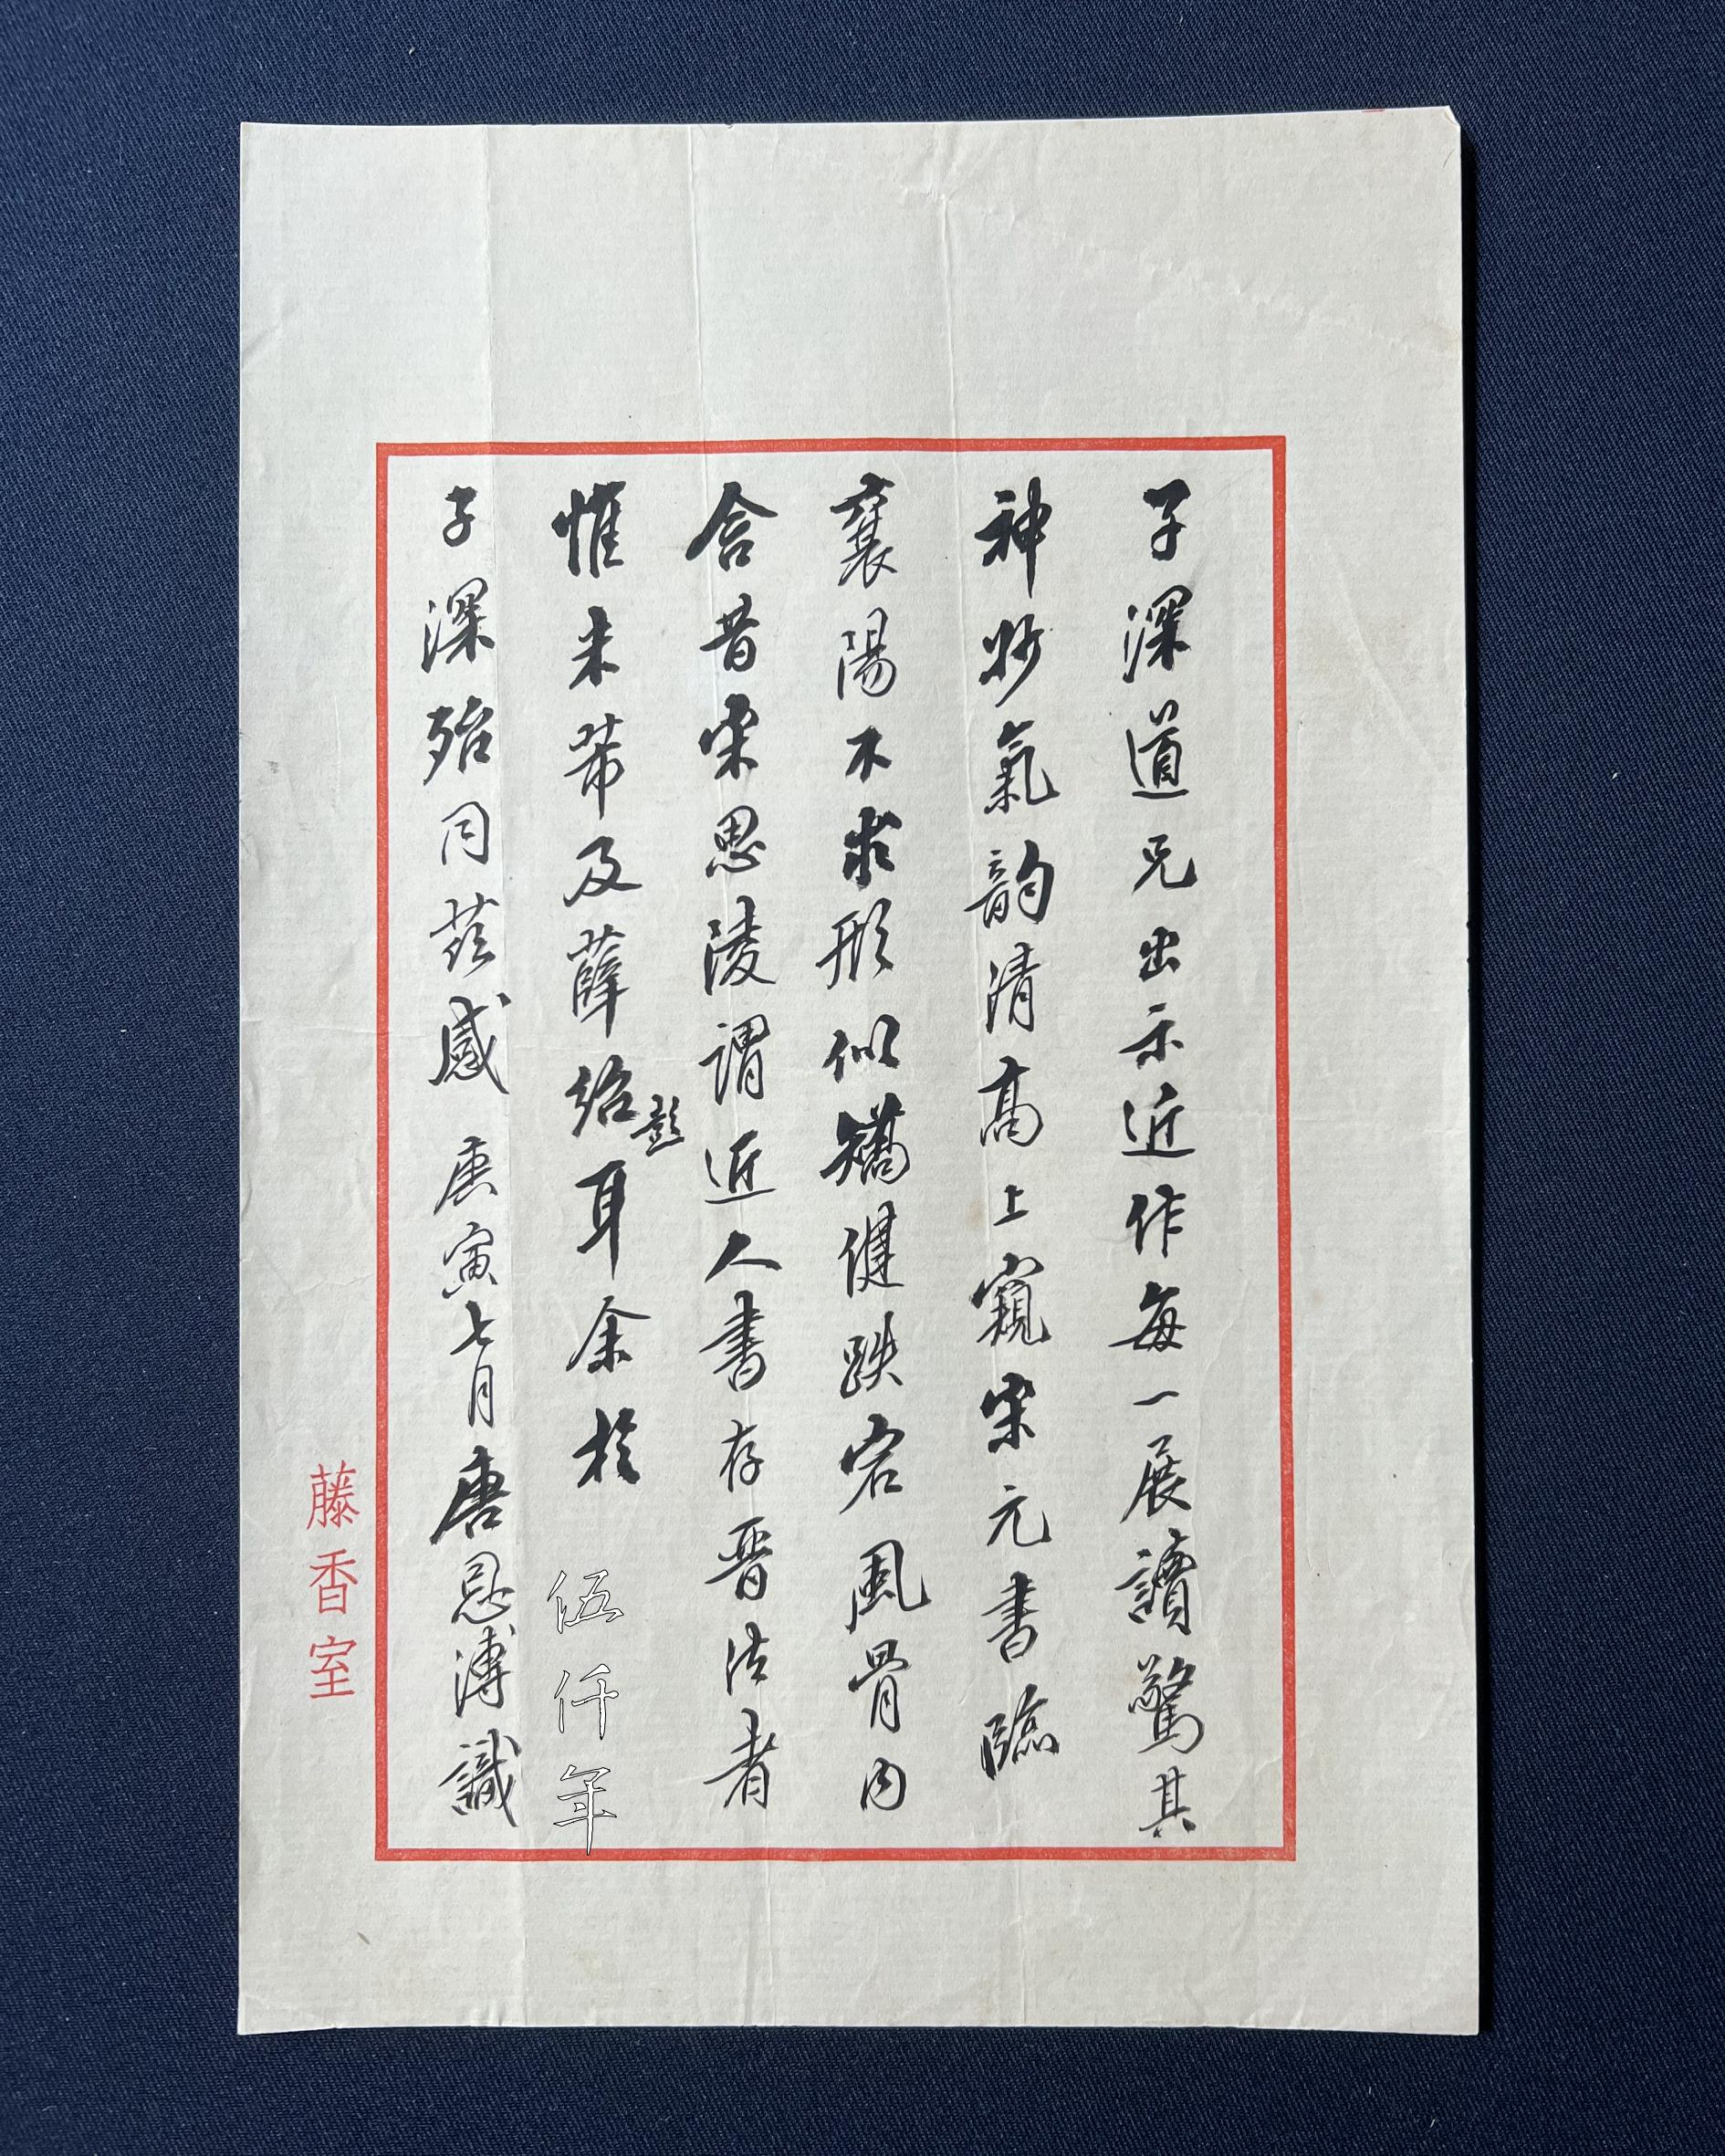 子深道兄出示近作每一展讀驚其
神妙氣韵清高上窺宋元書臨
襄陽不求形似矯健跌宕風骨内
含昔宋思陵謂近人書存晋法者
惟米芾及薛紹彭耳余於 伍仟年
子深殆同茲感 庚寅七月唐恩溥識
藤香室